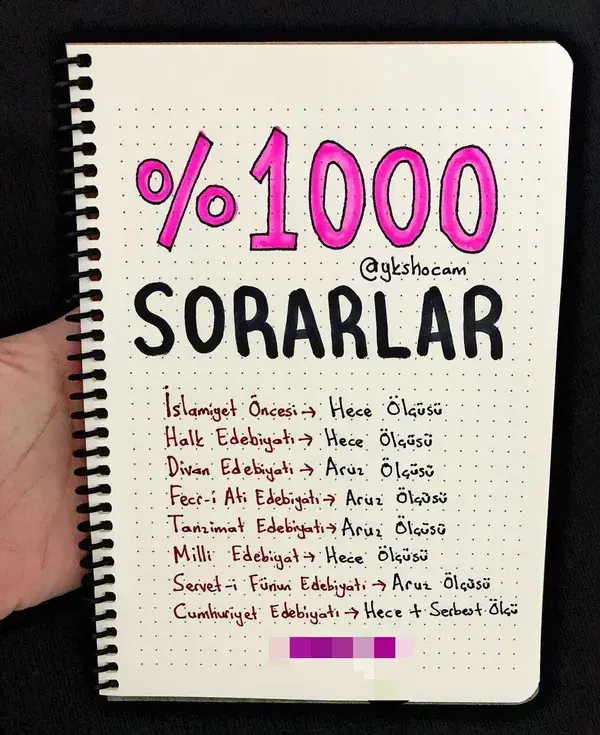 %1000
@ykshocam
SORARLAR
İslamiyet Öncesi → Hece Ölçüsü
Halk Edebiyatı → Hece Ölçüsü
Divan Edebiyatı → Aruz Ölçüsü
Fecr-i Ati Edebiyatı → Aruz Ölçüsü
Tanzimat Edebiyatı → Aruz Ölçüsü
Milli Edebiyat → Hece Ölçüsü
Servet-i Fünun Edebiyatı → Aruz Ölçüsü
Cumhuriyet Edebiyatı → Hece + Serbest Ölçü